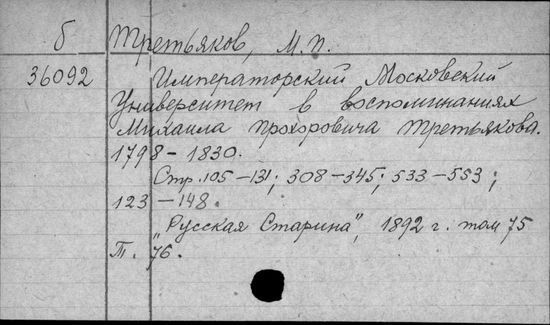 б Третьяков, М.П.
36092 Императорский Московский
Университет в воспоминаниях
Михаила Прохоровича Третьякова.
1798-1830.
Стр. 105-131; 308-345; 533-553;
123-148.
„Русская Старина", 1892 г. том 75
Т. 76.